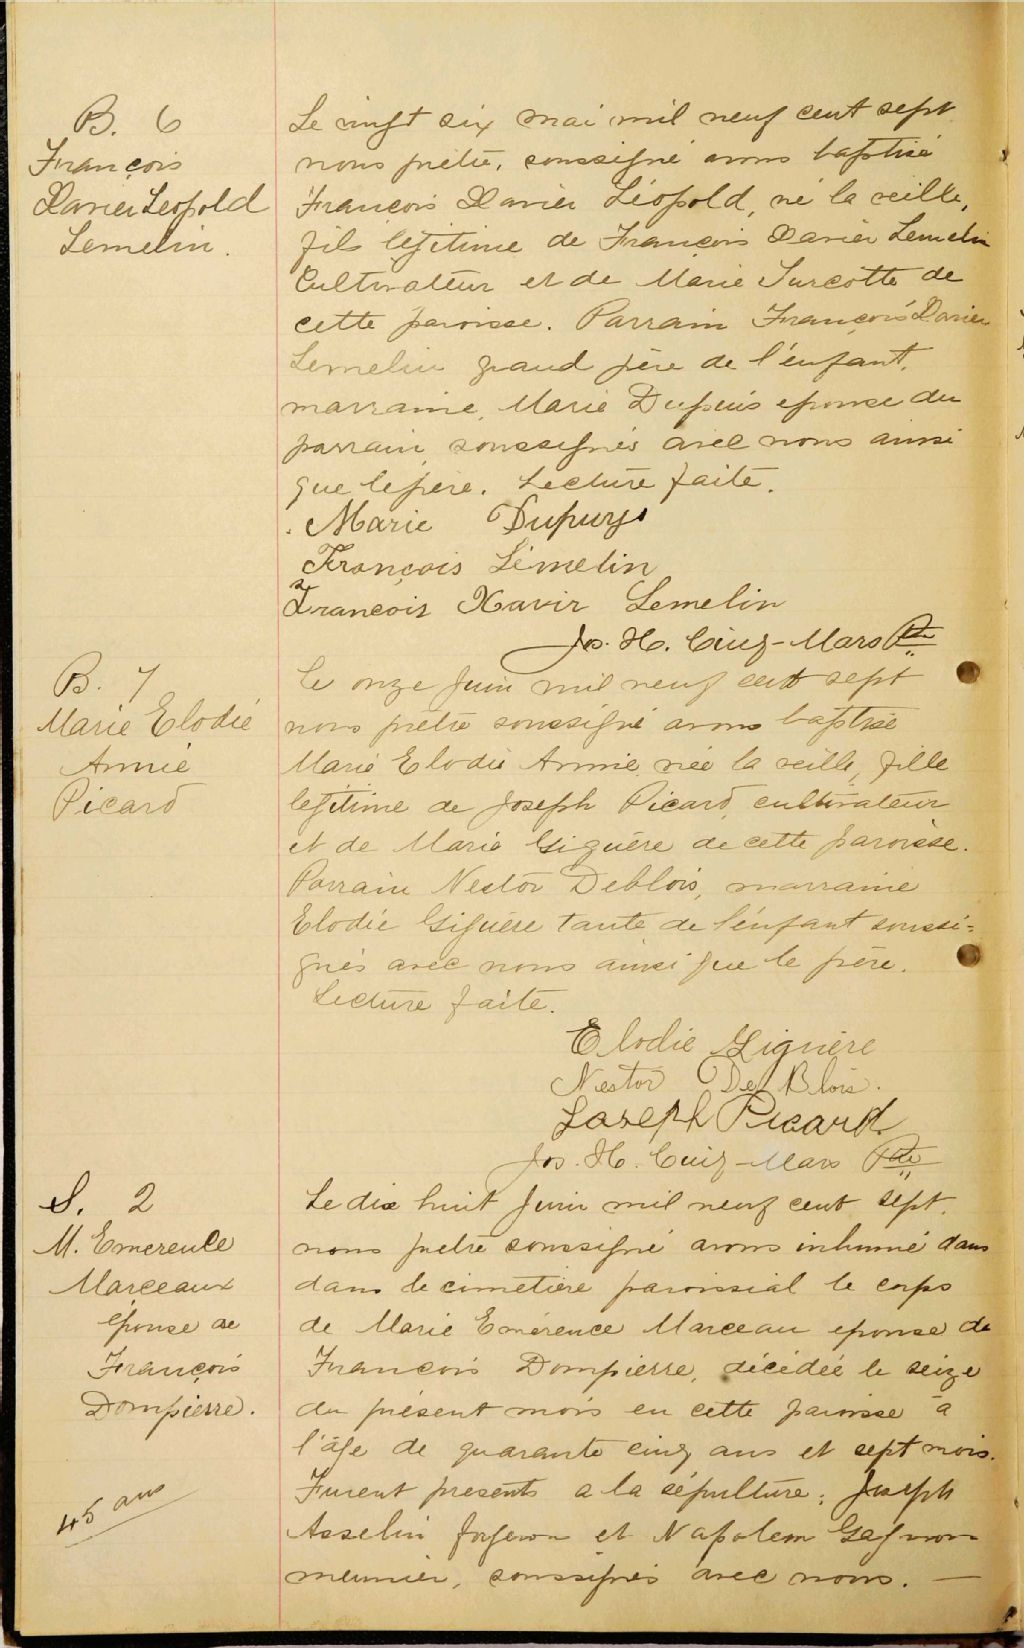 B. 6
François
Xavier Leopold
Lemelin.
Le vingt six mai mil neuf cent sept
nous prêtre, soussigné avons baptisé
François Xavier Léopold, né la veille,
fils legitime de François Xavier Lemelin
Cultivateur et de Marie Turcotte de
cette paroisse. Parrain François Xavier
Lemelin grand père de l'enfant,
marraine, Marie Dupuis epouse du
parrain soussignés avec nous ainsi
que le père. Lecture faite.
Marie Dupuys
François Lémelin
François Xavir Lemelin
Jos. H. Cinq-Mars Ptre
B. 7
Marie Elodie
Annie
Picard
Le onze Juin mil neuf cent sept
nous prêtre soussigné avons baptisé
Marie Elodie Annie, née la veille, fille
legitime de Joseph Picard, cultivateur
et de Marie Giguère de cette paroisse.
Parrain Nestor Deblois, marraine
Elodie Giguère tante de l'enfant soussi=
gnés avec nous ainsi que le père.
Lecture faite.
Elodie Giguère
Nestor De Blois.
Joseph Picard
Jos. H. Cinq-Mars Ptre
S. 2
M. Emerence
Marceaux
épouse de
François
Dompierre.
45 ans
Le dix huit Juin mil neuf cent sept,
nous prêtre soussigné avons inhumé dans
dans le cimetière paroissial le corps
de Marie Emérence Marceau epouse de
François Dompierre, décédée le seize
du présent mois en cette paroisse à
l'âge de quarante cinq ans et sept mois.
Furent presents a la sépulture: Joseph
Asselin forgeron et Napoleon Gagnon
meunier, soussignés avec nous. —